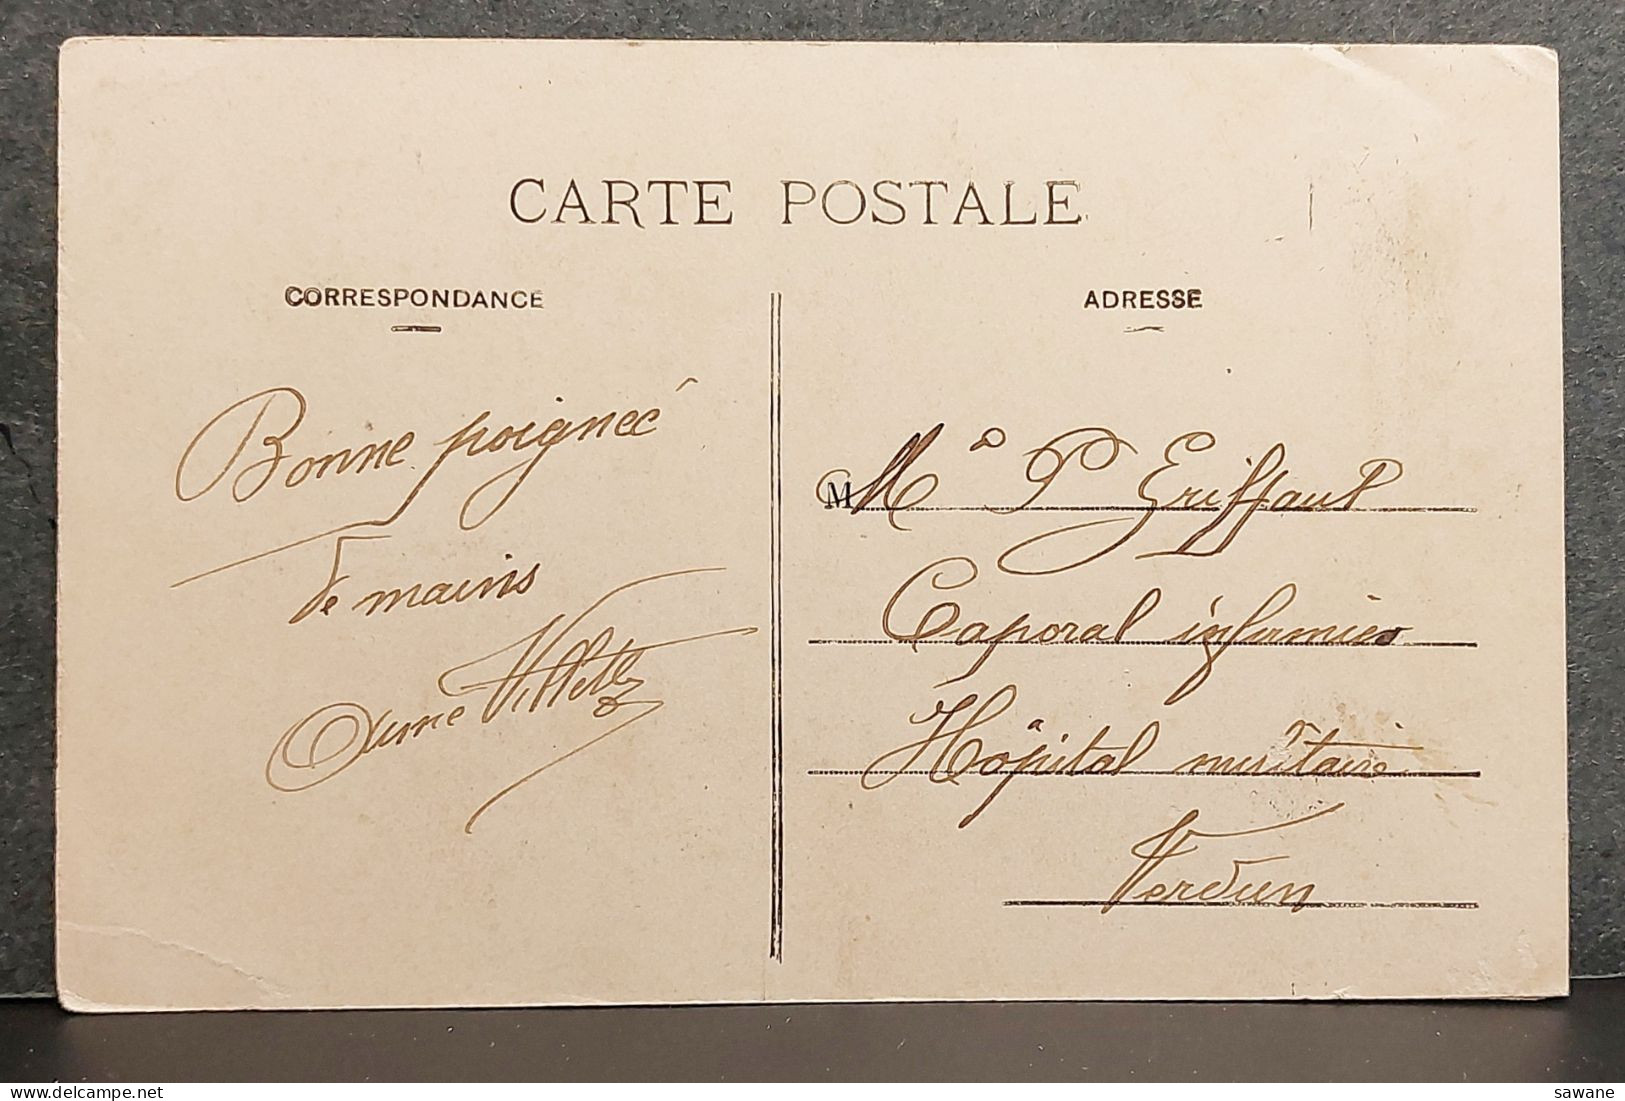 CARTE POSTALE
CORRESPONDANCE
Bonne poignée
de mains
Villette
ADRESSE
M Mr P Griffaut
Caporal infirmier
Hôpital militaire
Verdun
sawane